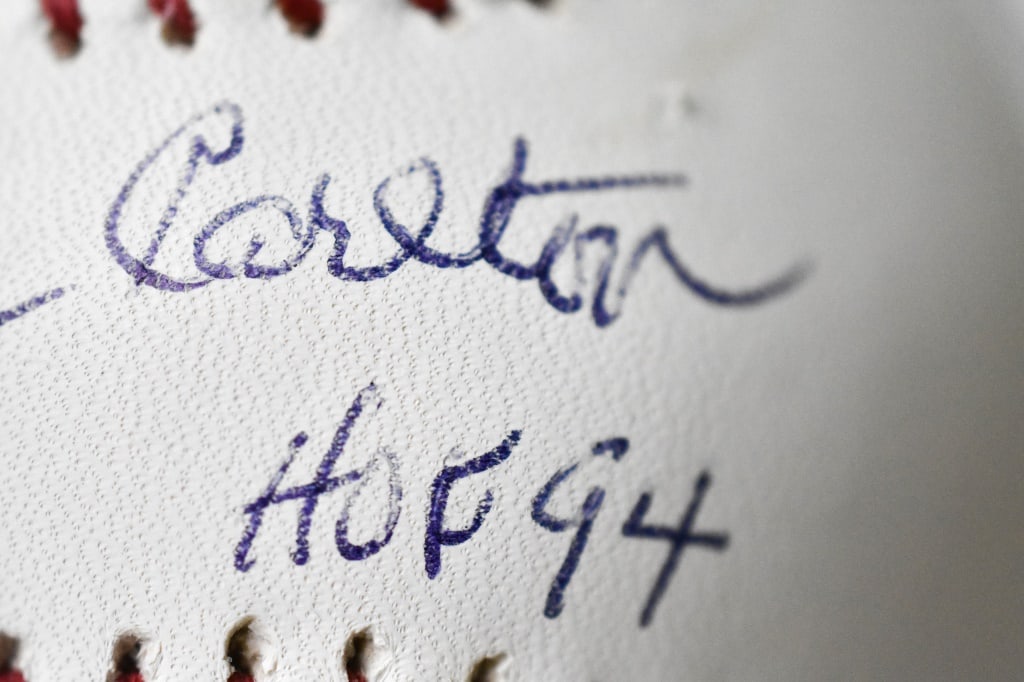 Carlton
HOF 94